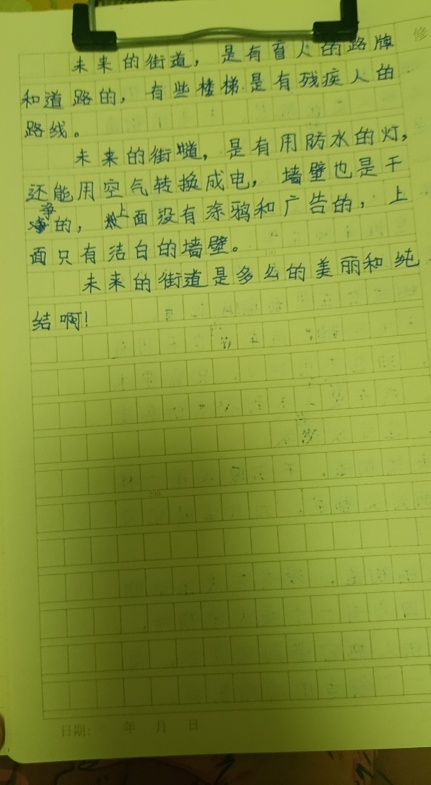 未来的街道，是有盲人的路牌
和道路的，有些楼梯是有残疾人的
路线。
未来的街道，是有用防水的灯，
还能用空气转换成电，墙壁也是干
净的，上面没有涂鸦和广告的，上
面只有洁白的墙壁。
未来的街道是多么的美丽和纯
结啊！
日期： 年 月 日
修